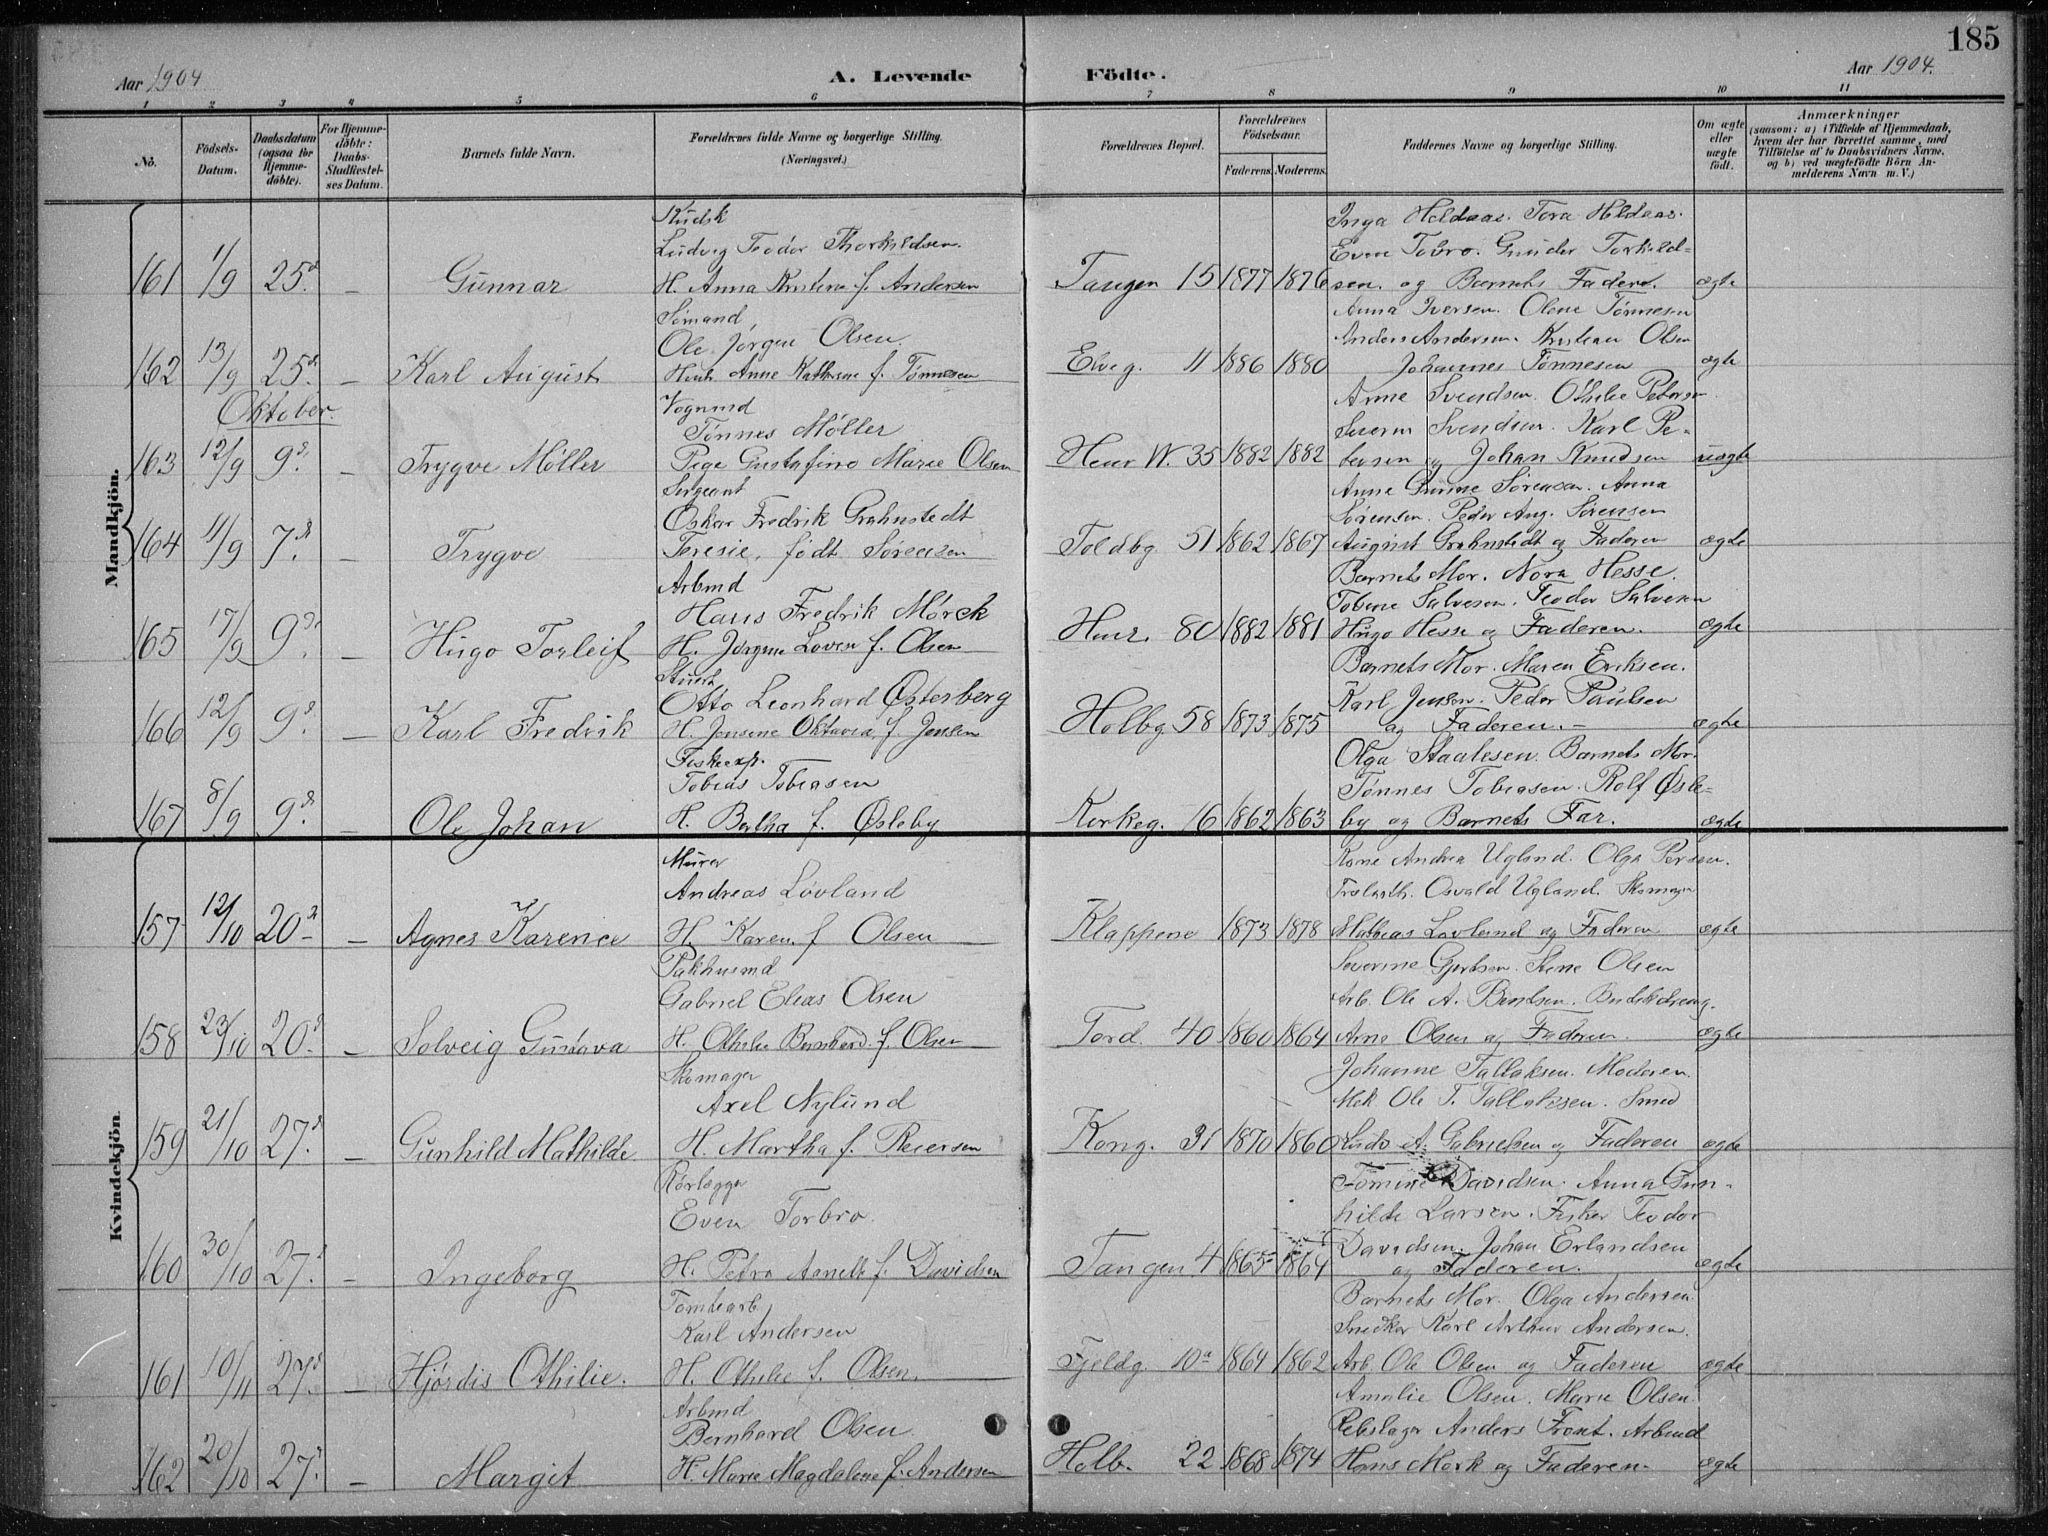 185
Aar 1904
A. Levende
Födte.
Aar 1904.
1 2 3 4 5 6 7 8 9 10 11
No.
Födsels-Datum.
Daabsdatum (ogsaa for Hjemme-döbte).
For Hjemme-döbte: Daabs-Stadfæstel-ses Datum.
Barnets fulde Navn.
Forældrenes fulde Navne og borgerlige Stilling. (Næringsvei.)
Forældrenes Bopæl.
Forældrenes Födselsaar.
Faderens. Moderens.
Faddernes Navne og borgerlige Stilling.
Om ægte eller uægte födt.
Anmærkninger
(saasom: a) i Tilfælde af Hjemmedaab, hvem der har forrettet samme, med Tilföielse af to Daabsvidners Navne, og b) ved uægtefödte Börn An-melderens Navn m. V.)
Mandkjön.
161 1/9 25de — Gunnar
Kudsk
Ludvig Teodor Thorkildsen.
H. Anna Kristine f. Andersen
Tangen 15 1877 1876
Inga Heldaas. Tora Heldaas.
Even Tobro. Gunder Torkild-
sen. og Barnets Fader.
ægte
162 13/9 25de — Karl August
Sömand
Ole Jörgen Olsen.
Hust. Anne Kathrine f. Tönnesen
Elveg. 11 1886 1880
Anna Iversen. Olene Tönnesen
Anders Andersen. Kristian Olsen
Johannes Tönnesen
ægte
Oktober.
163 12/9 9de — Trygve Möller
Vognmd
Tönnes Möller
Pige Gustafine Marie Olsen
Henr W. 35 1882 1882
Arne Svendsen. Othilie Petersen
Severin Svendsen. Karl Pe-
tersen og Johan Knudsen
uægte
164 11/9 7de — Trygve
Sergeant
Oskar Fredrik Grahnstedt
Teresie, født Sörensen
Toldbg 51 1862 1867
Anne Gurine Sörensen. Anna
Sörensen. Peder Aug. Sörensen
August Grahnstedt og Faderen
ægte
165 17/9 9de — Hugo Torleif
Arbmd
Hans Fredrik Mörck
H. Jörgine Lovise f. Olsen
Henr. 80 1882 1881
Barnets Mor. Nora Hesse.
Tobine Salvesen. Teodor Salvesen
Hugo Hesse og Faderen.
ægte
166 12/9 9de — Karl Fredrik
Stuert
Otto Leonhard Østerberg
H. Jensine Oktavia f. Jensen
Holbg 58 1873 1875
Barnets Mor. Maren Eriksen.
Karl Jensen. Peder Paulsen
og Faderen.
ægte
167 8/9 9de — Ole Johan
Fiskeexp.
Tobias Tobiasen
H. Bertha f. Østeby
Kirkeg. 16 1862 1863
Olga Staalesen. Barnets Mor.
Tönnes Tobiasen. Rolf Øste-
by og Barnets Far.
ægte
Kvindekjön.
157 12/10 20de — Agnes Karence
Murer
Andreas Lövland
H. Karen f Olsen
Klappene 1873 1878
Kone Andrea Ugland. Olga Persen.
Osvald Ugland. Skomager
Mathias Lövland og Faderen
ægte
158 23/10 20de — Solveig Gustava
Pakhusmd
Gabriel Elias Olsen
H. Othilie Bernhard. f. Olsen
Tord. 40 1860 1864
Severine Gjertsen. Stine Olsen
Arb. Ole A. Berntsen.
Arne Olsen og Faderen.
ægte
159 21/10 27de — Gunhild Mathilde.
Skomager
Axel Nylund
H. Martha f. Reiersen
Kong. 31 1870 1860
Johanne Tallaksen. Moderen.
Mek Ole T. Tallaksen. Smed
A. Gabrielsen og Faderen
ægte
160 30/10 27de — Ingeborg
Rörlegger
Even Torbro.
H. Petra Anette f. Davidsen
Tangen 4 1865 1864
Tomine Davidsen. Anna Gun-
hilde Larsen. Fisker Teodor
Davidsen. Johan Erlandsen
og Faderen.
ægte
161 10/11 27de — Hjördis Othilie.
Tomtearb
Karl Andersen
H. Othilie f. Olsen.
Fjeldg. 10a 1864 1862
Barnets Mor. Olga Andersen.
Snedker Karl Arthur Andersen.
Arb. Ole Olsen og Faderen
ægte
162 20/10 27de — Margit
Arbmd
Bernhard Olsen.
H. Marie Magdalene f. Andersen
Holb. 22 1868 1874
Amalie Olsen. Marie Olsen.
Rebslager Anders Front. Arbmd
Hans Mörk og Faderen.
ægte